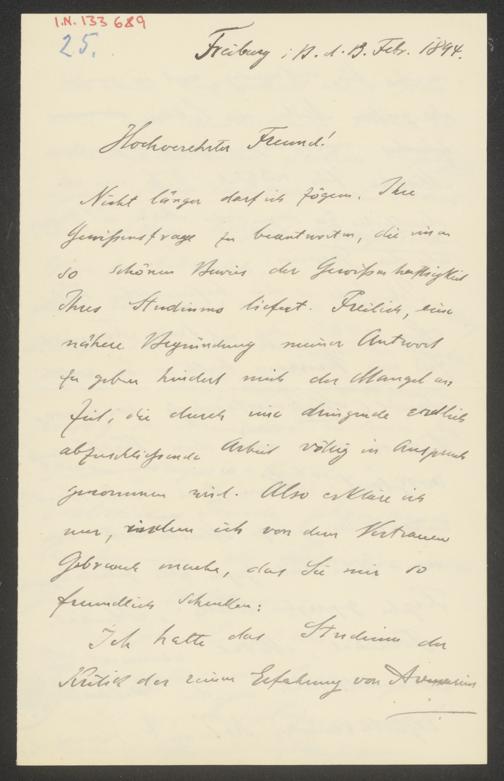 I.N. 133 689
25.
Freiburg i/B. d. 13. Febr. 1894.
Hochverehrter Freund!
Nicht länger darf ich zögern. Ihre
Gewißensfrage zu beantworten, die einen
so schönen Beweis der Gewißenhaftigkeit
Ihres Studiums liefert. Freilich, eine
nähere Begründung meiner Antwort
zu geben hindert mich der Mangel an
Zeit, die durch eine dringende endlich
abzuschließende Arbeit völlig in Anspruch
genommen wird. Also erkläre ich
nur, indem ich von dem Vertrauen
Gebrauch mache, das Sie mir so
freundlich schenken:
Ich halte das Studium der
Kritik der reinen Erfahrung von Avenarius